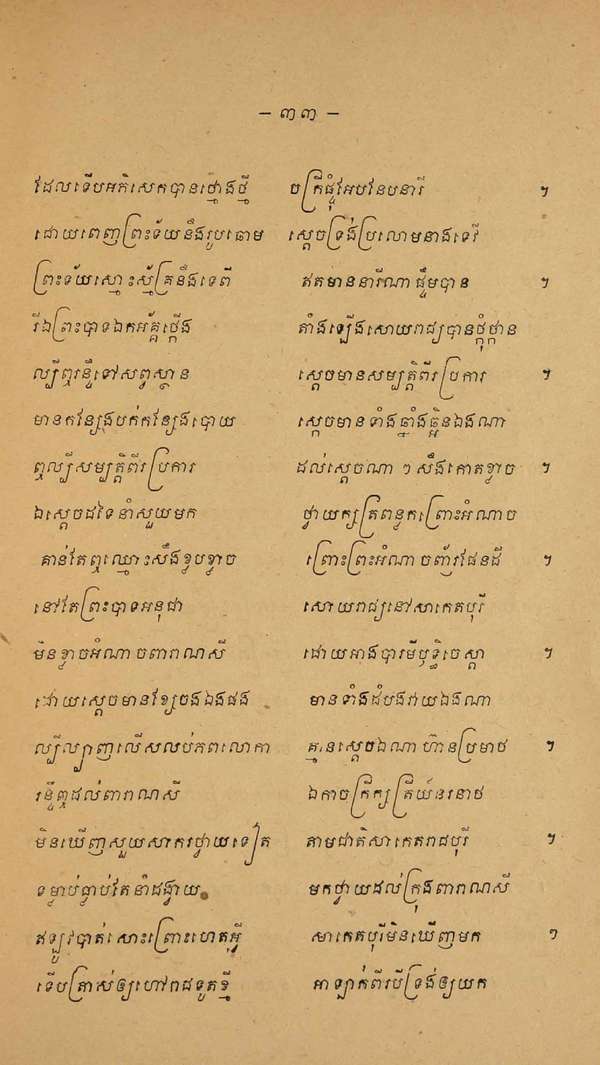 – ៣៣ –
ដែលទើបអភិសេកបានថ្មោងថ្មី ចក្រីផ្ទុំអែបនែបនារី ។
ដោយពេញព្រះទ័យនឹងរូបឆោម ស្ដេចទ្រង់ប្រលោមនាងទេវី
ព្រះទ័យស្មោះស្ម័គ្រនឹងទេពី ឥតមាននារីណាផ្ទឹមបាន ។
រីឯព្រះបាទឯកអគ្គថ្កើង តាំងឡើងសោយរាជ្យបានថ្កុំថ្កាន
ល្បីឮរន្ទឺទៅសព្វស្ថាន ស្ដេចមានសម្បត្តិពីរប្រការ ។
មានកន្សែងបក់កន្សែងបោយ ស្ដេចមានទាំងឆ្នាំងធ្អិនឯងណា
ឮល្បីសម្បត្តិពីរប្រការ ដល់ស្ដេចណា ៗ សឹងកោតខ្លាច ។
ឯស្ដេចដទៃនាំសួយមក ថ្វាយក្សត្រពន្លកព្រោះអំណាច
គាន់តែឮឈ្មោះសឹងខ្លបខ្លាច ព្រោះព្រះអំណាចញ័រផែនដី ។
នៅតែព្រះបាទអនុជា សោយរាជ្យនៅសាកេតបុរី
មិនខ្លាចអំណាចពារាណសី ដោយអាងបារមីឫទ្ធិចេស្ដា ។
ដោយស្ដេចមានខ្សែចងឯងផង មានទាំងដំបងវាយឯងណា
ល្បីល្បាញលើសលប់ភពលោកា គ្មានស្ដេចឯណាហ៊ានប្រមាថ ។
រន្ទឺឮដល់ពារាណសី ឯកាចក្រីក្សត្រីយ៍នរនាថ
មិនឃើញសួយសាករថ្វាយទៀត តាមជាតិសាកេតរាជបុរី ។
ទម្លាប់ធ្លាប់តែនាំដង្វាយ មកថ្វាយដល់ក្រុងពារាណសី
ឥឡូវបាត់សោះព្រោះហេតុអ្វី សាកេតបុរីមិនឃើញមក ។
ទើបត្រាស់ឲ្យហៅរាជទូតខ្មី អាឡាក់ពីរបីទ្រង់ឲ្យយក